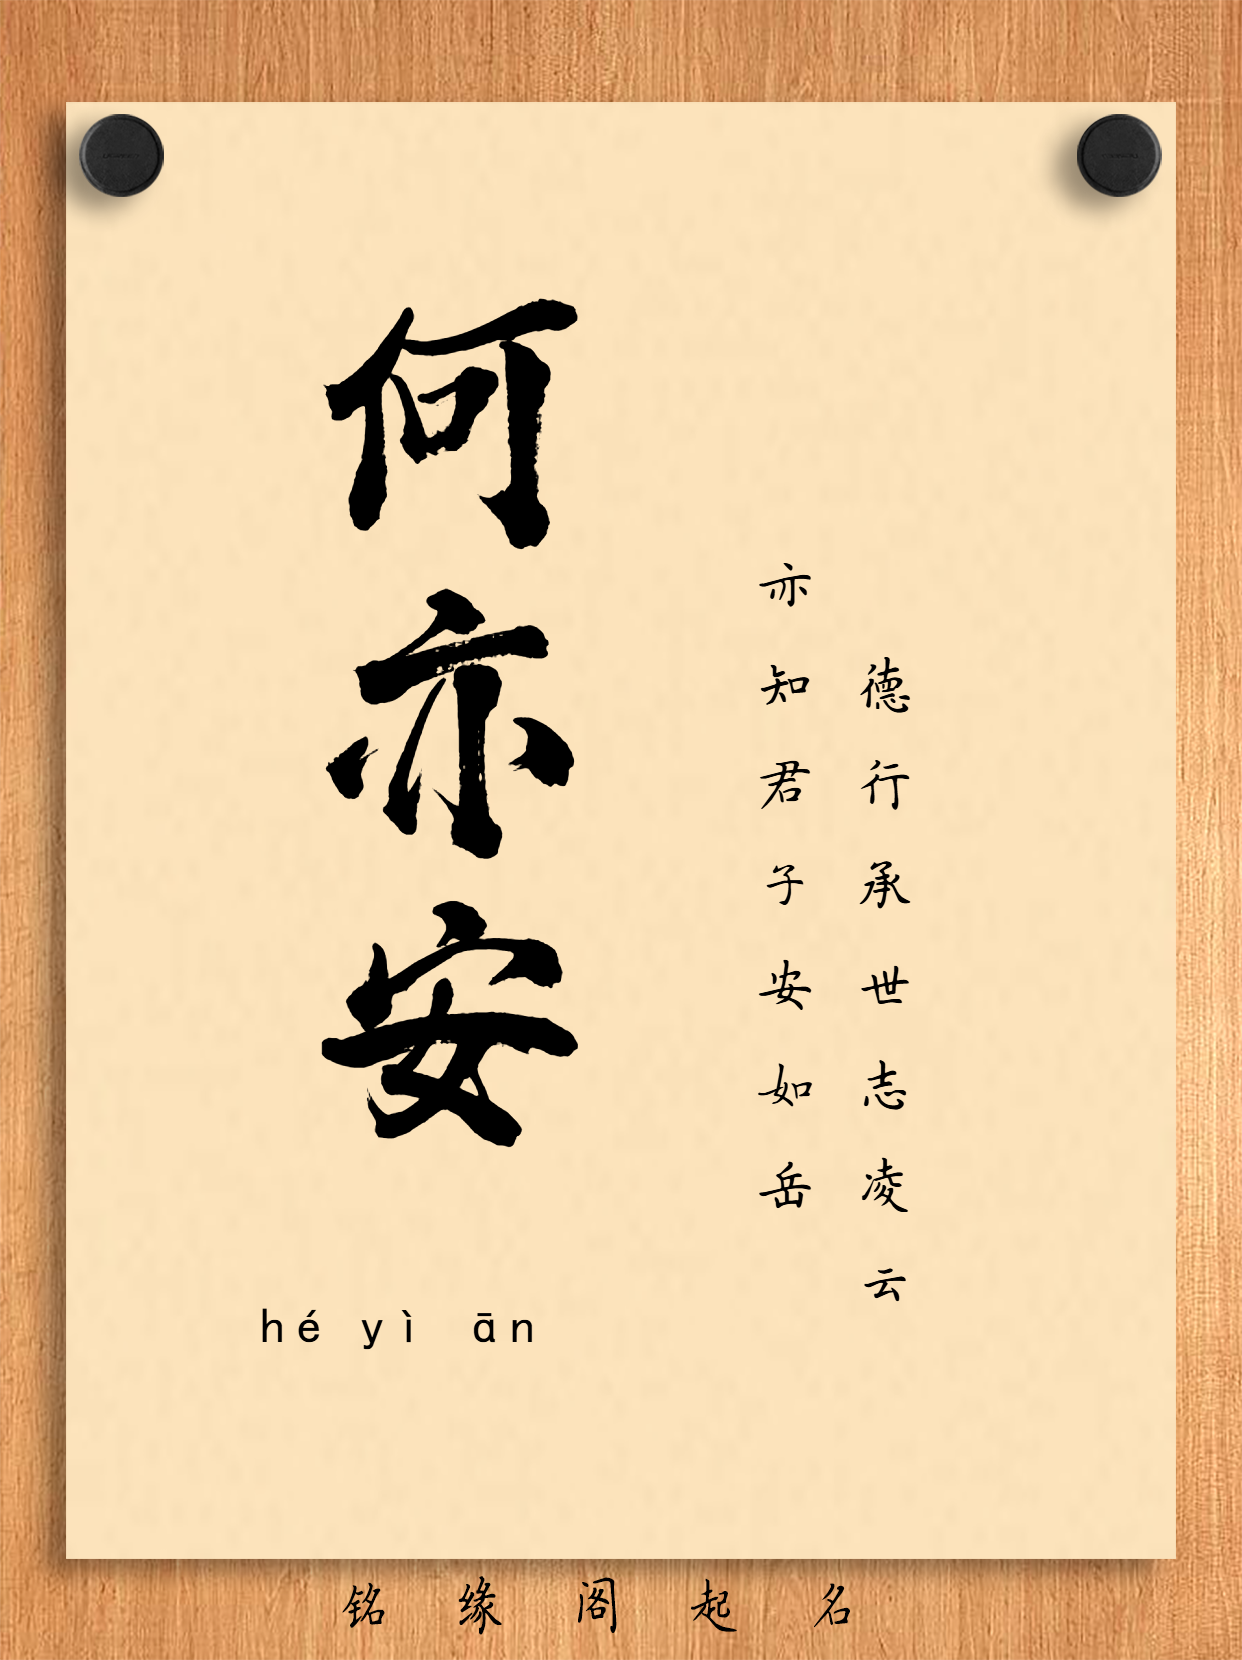 何亦安
德行承世志凌云
亦知君子安如岳
hé yì ān
铭缘阁起名